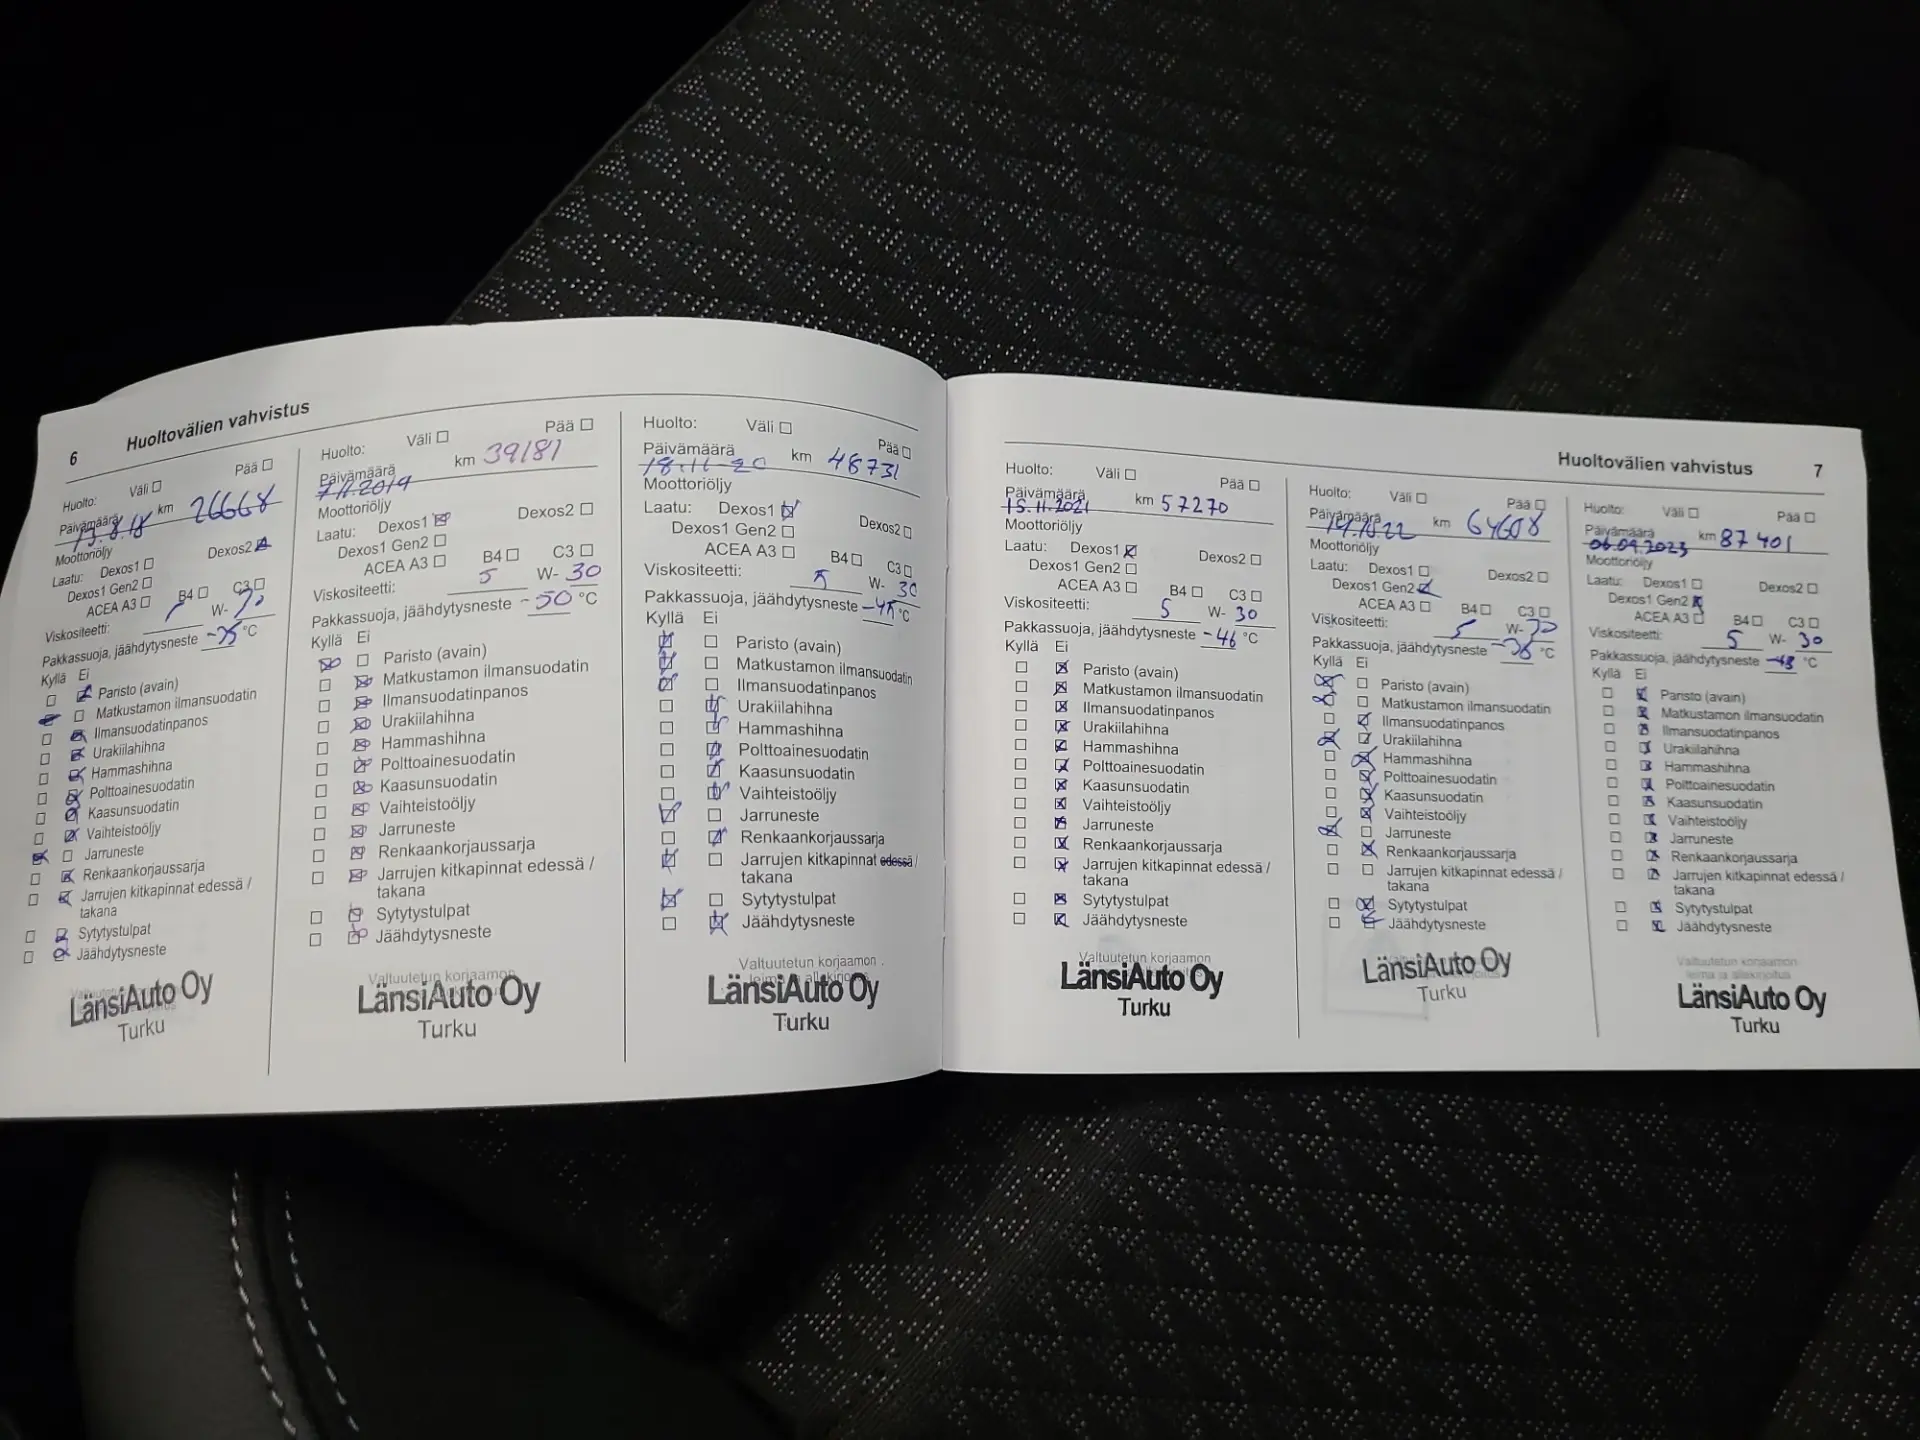 6 Huoltovälien vahvistus
Huolto: Väli Pää
Päivämäärä 13.8.18 km 26668
Moottoriöljy
Laatu: Dexos1 Dexos2
Dexos1 Gen2
ACEA A3 B4 C3
Viskositeetti: W-
Pakkassuoja, jäähdytysneste -35 °C
Kyllä Ei
Paristo (avain)
Matkustamon ilmansuodatin
Ilmansuodatinpanos
Urakiilahihna
Hammashihna
Polttoainesuodatin
Kaasunsuodatin
Vaihteistoöljy
Jarruneste
Renkaankorjaussarja
Jarrujen kitkapinnat edessä /
takana
Sytytystulpat
Jäähdytysneste
LänsiAuto Oy
Turku
Huolto: Väli Pää
Päivämäärä 7.11.2019 km 39181
Moottoriöljy
Laatu: Dexos1 Dexos2
Dexos1 Gen2
ACEA A3 B4 C3
Viskositeetti: 5 W- 30
Pakkassuoja, jäähdytysneste -50 °C
Kyllä Ei
Paristo (avain)
Matkustamon ilmansuodatin
Ilmansuodatinpanos
Urakiilahihna
Hammashihna
Polttoainesuodatin
Kaasunsuodatin
Vaihteistoöljy
Jarruneste
Renkaankorjaussarja
Jarrujen kitkapinnat edessä /
takana
Sytytystulpat
Jäähdytysneste
Valtuutetun korjaamon
LänsiAuto Oy
Turku
Huolto: Väli Pää
Päivämäärä 18.11-20 km 48731
Moottoriöljy
Laatu: Dexos1 Dexos2
Dexos1 Gen2
ACEA A3 B4 C3
Viskositeetti: 5 W- 30
Pakkassuoja, jäähdytysneste -45 °C
Kyllä Ei
Paristo (avain)
Matkustamon ilmansuodatin
Ilmansuodatinpanos
Urakiilahihna
Hammashihna
Polttoainesuodatin
Kaasunsuodatin
Vaihteistoöljy
Jarruneste
Renkaankorjaussarja
Jarrujen kitkapinnat edessä /
takana
Sytytystulpat
Jäähdytysneste
Valtuutetun korjaamon
LänsiAuto Oy
Turku
Huoltovälien vahvistus 7
Huolto: Väli Pää
Päivämäärä 15.11.2021 km 57270
Moottoriöljy
Laatu: Dexos1 Dexos2
Dexos1 Gen2
ACEA A3 B4 C3
Viskositeetti: 5 W- 30
Pakkassuoja, jäähdytysneste -46 °C
Kyllä Ei
Paristo (avain)
Matkustamon ilmansuodatin
Ilmansuodatinpanos
Urakiilahihna
Hammashihna
Polttoainesuodatin
Kaasunsuodatin
Vaihteistoöljy
Jarruneste
Renkaankorjaussarja
Jarrujen kitkapinnat edessä /
takana
Sytytystulpat
Jäähdytysneste
Valtuutetun korjaamon
LänsiAuto Oy
Turku
Huolto: Väli Pää
Päivämäärä 19.10.22 km 64608
Moottoriöljy
Laatu: Dexos1 Dexos2
Dexos1 Gen2
ACEA A3 B4 C3
Viskositeetti: 5 W- 30
Pakkassuoja, jäähdytysneste -36 °C
Kyllä Ei
Paristo (avain)
Matkustamon ilmansuodatin
Ilmansuodatinpanos
Urakiilahihna
Hammashihna
Polttoainesuodatin
Kaasunsuodatin
Vaihteistoöljy
Jarruneste
Renkaankorjaussarja
Jarrujen kitkapinnat edessä /
takana
Sytytystulpat
Jäähdytysneste
LänsiAuto Oy
Turku
Huolto: Väli Pää
Päivämäärä 06.09.2023 km 87401
Moottoriöljy
Laatu: Dexos1 Dexos2
Dexos1 Gen2
ACEA A3 B4 C3
Viskositeetti: 5 W- 30
Pakkassuoja, jäähdytysneste -43 °C
Kyllä Ei
Paristo (avain)
Matkustamon ilmansuodatin
Ilmansuodatinpanos
Urakiilahihna
Hammashihna
Polttoainesuodatin
Kaasunsuodatin
Vaihteistoöljy
Jarruneste
Renkaankorjaussarja
Jarrujen kitkapinnat edessä /
takana
Sytytystulpat
Jäähdytysneste
Valtuutetun korjaamon
leima ja allekirjoitus
LänsiAuto Oy
Turku